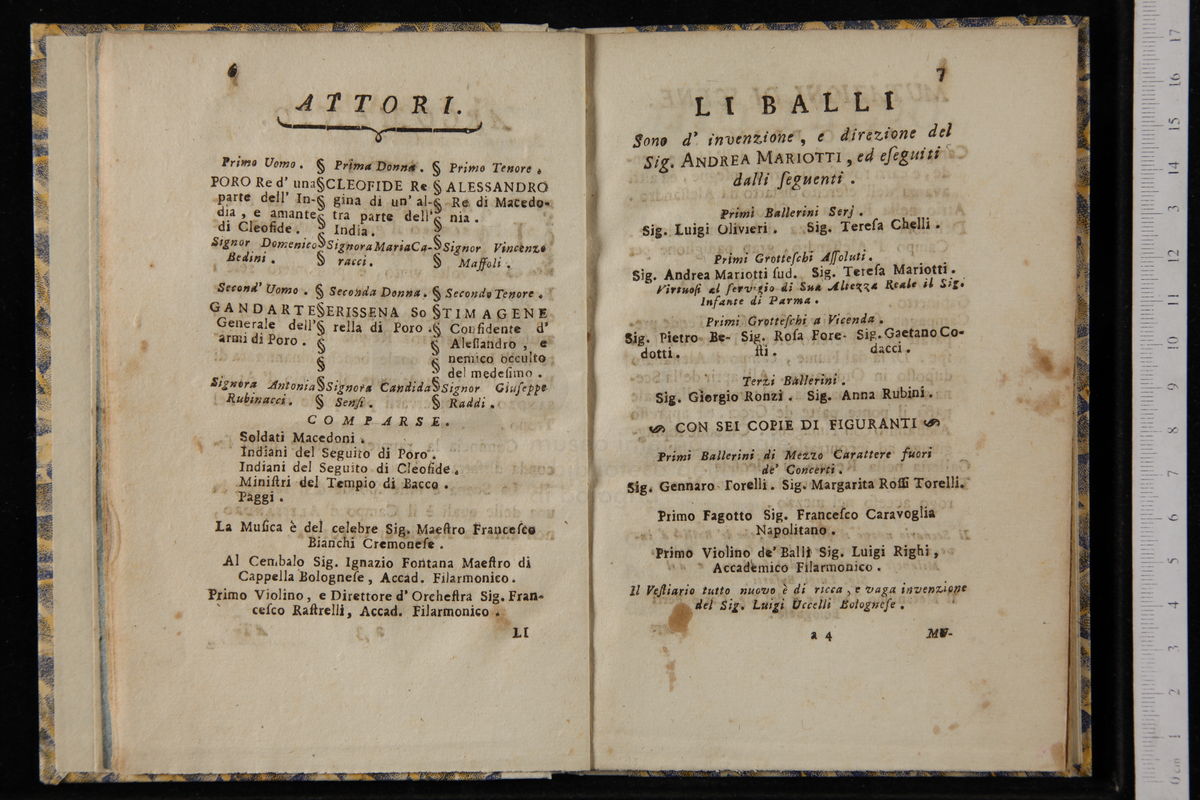 6
ATTORI.
Primo Uomo. § Prima Donna. § Primo Tenore.
PORO Re d' una § CLEOFIDE Re § ALESSANDRO
parte dell' In- § gina di un' al- § Re di Macedo-
dia, e amante § tra parte dell' § nia.
di Cleofide. § India. §
Signor Domenico § Signora Maria Ca- § Signor Vincenzo
Bedini. § racci. § Maffoli.
Second' Uomo. § Seconda Donna. § Secondo Tenore.
GANDARTE § ERISSENA So § TIMAGENE
Generale dell' § rella di Poro. § Confidente d'
armi di Poro. § § Aleſſandro, e
§ § nemico occulto
§ § del medeſimo.
Signora Antonia § Signora Candida § Signor Giuſeppe
Rubinacci. § Senſi. § Raddi.
COMPARSE.
Soldati Macedoni.
Indiani del Seguito di Poro.
Indiani del Seguito di Cleofide.
Miniſtri del Tempio di Bacco.
Paggi.
La Muſica è del celebre Sig. Maeſtro Franceſco
Bianchi Cremoneſe.
Al Cembalo Sig. Ignazio Fontana Maeſtro di
Cappella Bologneſe, Accad. Filarmonico.
Primo Violino, e Direttore d' Orcheſtra Sig. Fran-
ceſco Raſtrelli, Accad. Filarmonico.
LI
7
LI BALLI
Sono d' invenzione, e direzione del
Sig. ANDREA MARIOTTI, ed eſeguiti
dalli ſeguenti.
Primi Ballerini Serj.
Sig. Luigi Olivieri. Sig. Tereſa Chelli.
Primi Grotteſchi Aſſoluti.
Sig. Andrea Mariotti ſud. Sig. Tereſa Mariotti.
Virtuoſi al ſervigio di Sua Altezza Reale il Sig.
Infante di Parma.
Primi Grotteſchi a Vicenda.
Sig. Pietro Be- Sig. Roſa Fore- Sig. Gaetano Co-
dotti. ſti. dacci.
Terzi Ballerini.
Sig. Giorgio Ronzi. Sig. Anna Rubini.
CON SEI COPIE DI FIGURANTI
Primi Ballerini di Mezzo Carattere fuori
de' Concerti.
Sig. Gennaro Torelli. Sig. Margarita Roſſi Torelli.
Primo Fagotto Sig. Franceſco Caravoglia
Napolitano.
Primo Violino de' Balli Sig. Luigi Righi,
Accademico Filarmonico.
Il Veſtiario tutto nuovo è di ricca, e vaga invenzione
del Sig. Luigi Uccelli Bologneſe.
a 4 MU-
0 cm 1 2 3 4 5 6 7 8 9 10 11 12 13 14 15 16 17